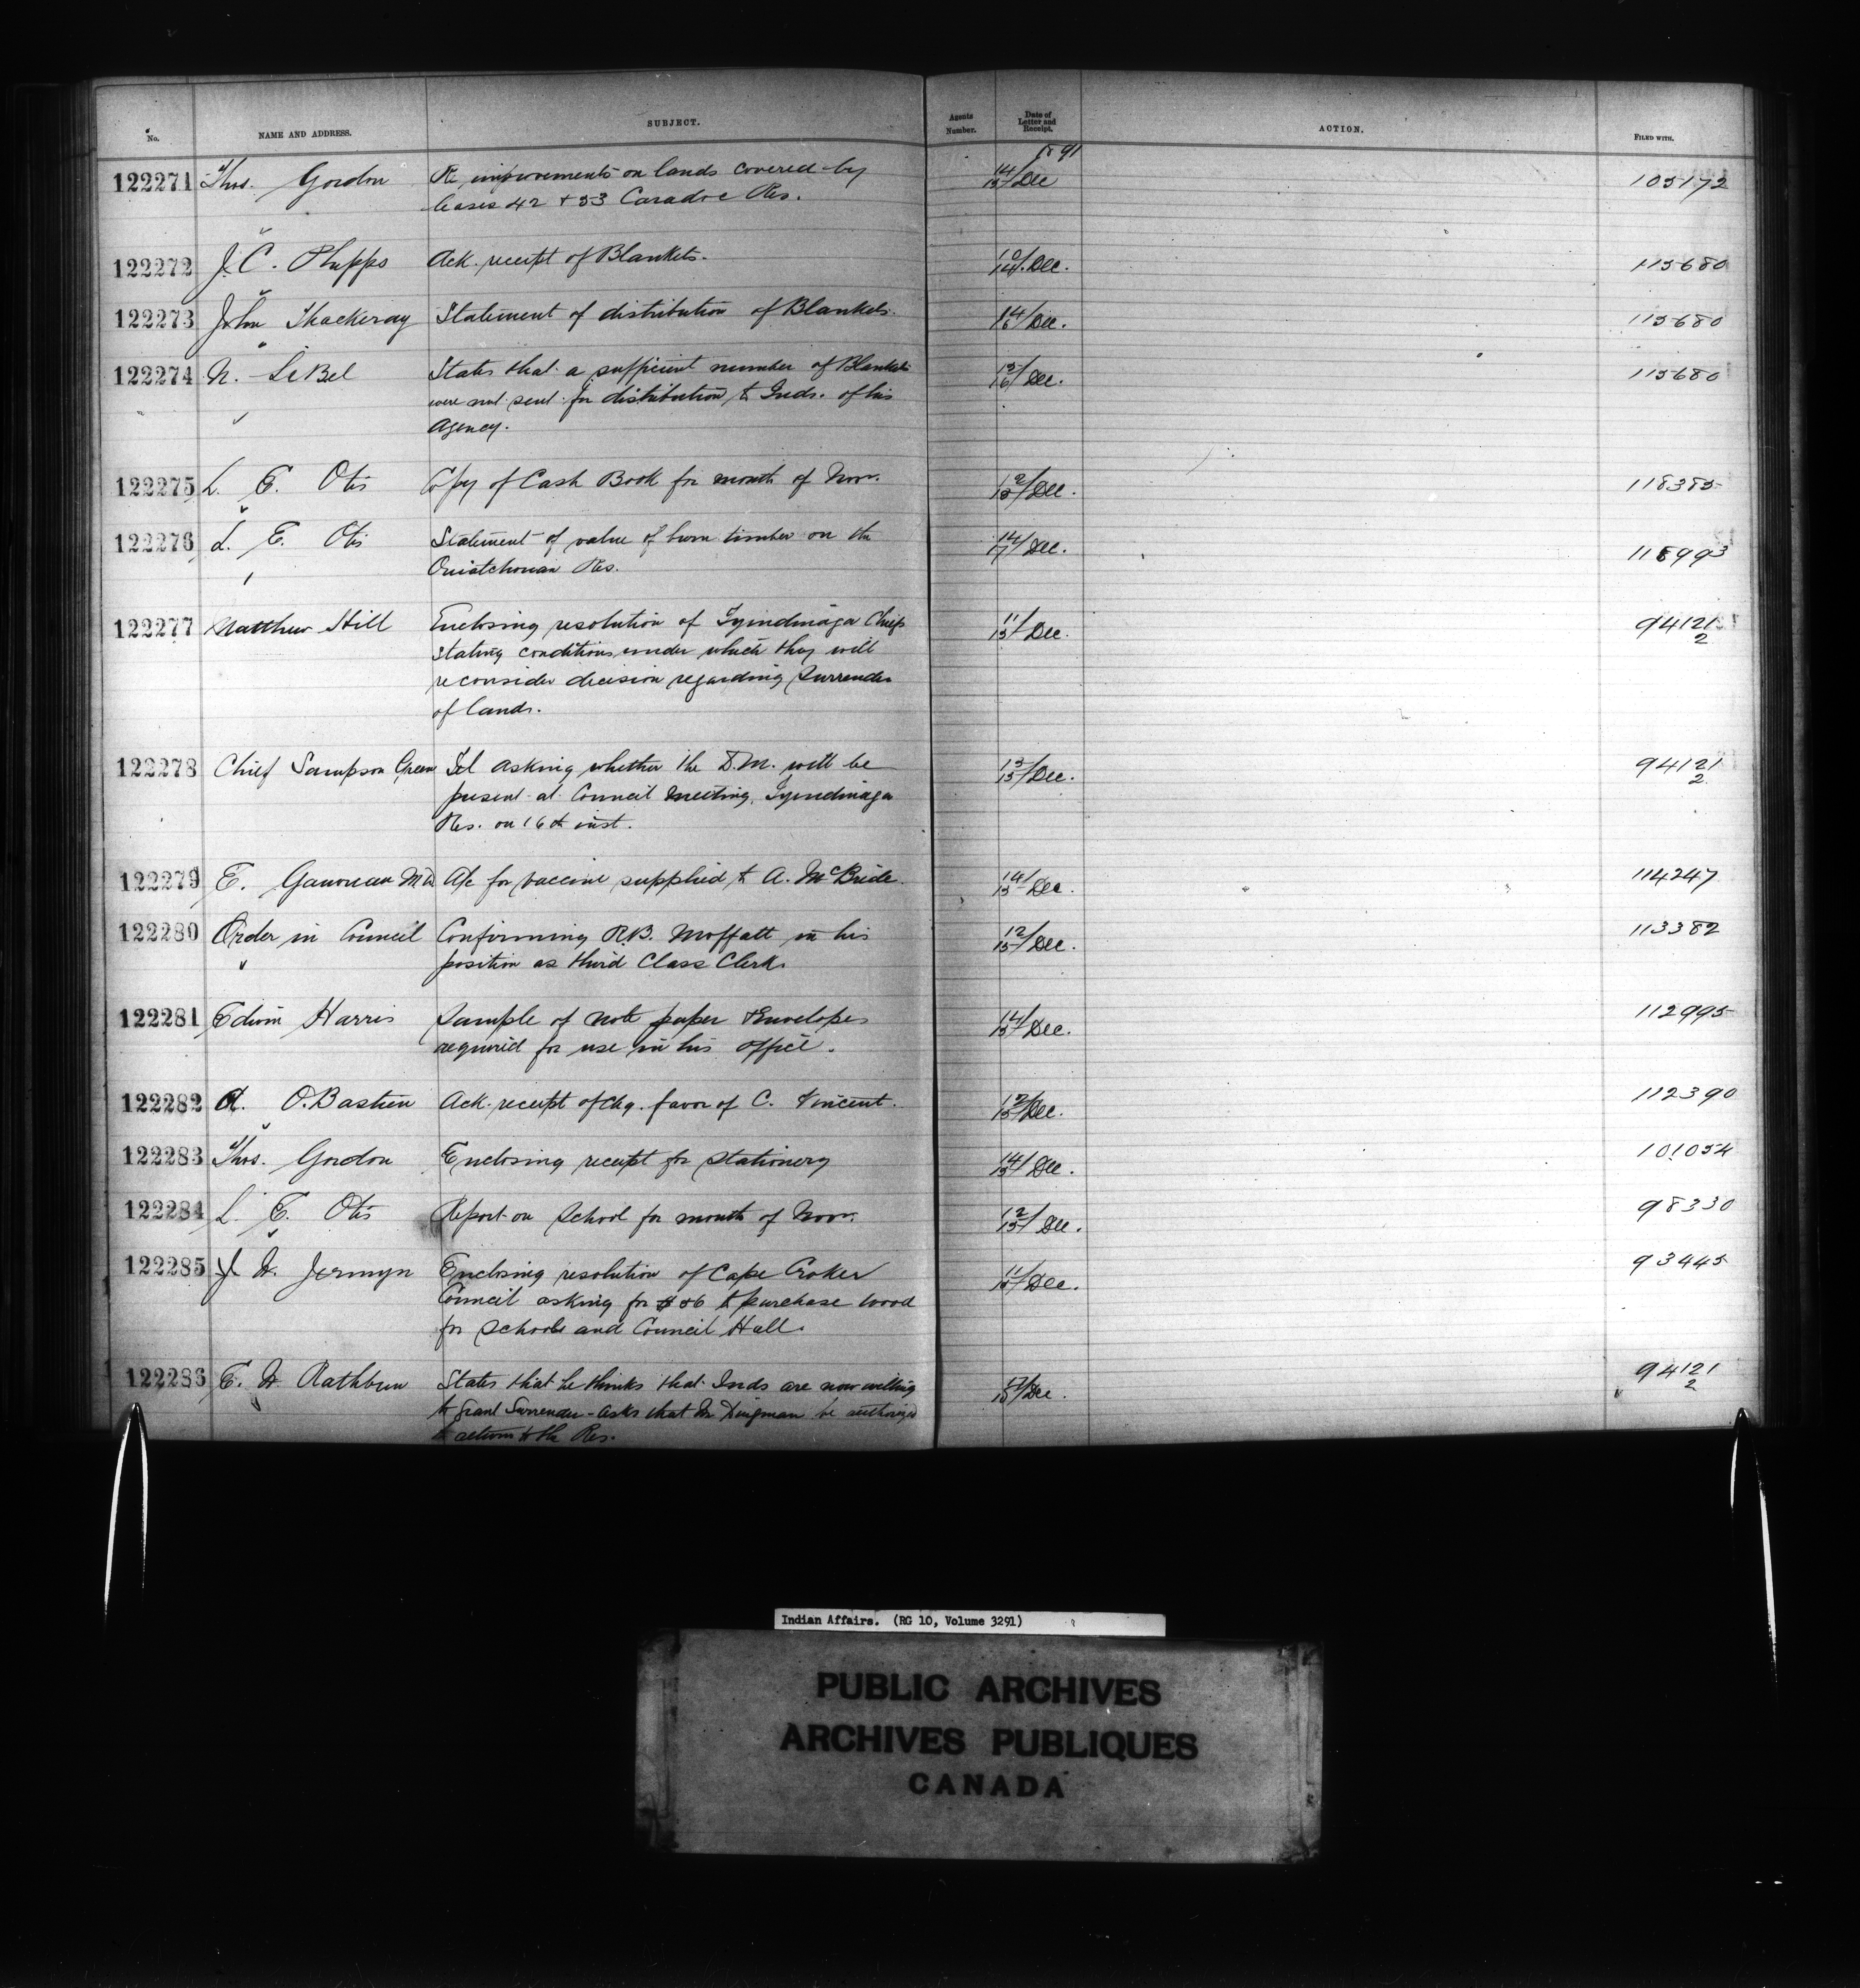 No. NAME AND ADDRESS. SUBJECT. Agents Number. Date of Letter and Receipt. ACTION. FILED WITH.
1891
122271 Thos. Gordon Re improvements on lands covered by 14/15 Dec 105172
leases 42 + 53 Caradoc Res.
122272 J. C. Phipps Ack. receipt of Blankets. 10/14 Dec. 115680
122273 John Thackeray Statement of distribution of Blankets. 14/16 Dec. 115680
122274 N. LeBel States that a sufficient number of Blankets 15/16 Dec. 115680
were not sent for distribution to Inds. of his
Agency.
122275 L. E. Otis Copy of Cash Book for month of Nov. 12/15 Dec. 118385
122276 L. E. Otis Statement of value of burn timber on the 14/17 Dec. 116993
Ouiatchouan Res.
122277 Matthew Hill Enclosing resolution of Tyendinaga Chiefs 11/15 Dec. 94121/2
stating conditions under which they will
reconsider decision regarding Surrender
of lands.
122278 Chief Sampson Green Tel asking whether the D.M. will be 15/15 Dec. 94121/2
present at Council Meeting, Tyendinaga
Res. on 16th inst.
122279 E. M.D. A/c for vaccine supplied to A. McBride. 14/15 Dec. 114247
122280 Order in Council Confirming R.B. Moffatt in his 12/15 Dec. 113382
position as third Class Clerk.
122281 Edwin Harris Sample of note paper & Envelopes 14/15 Dec. 112995
required for use in his office.
122282 A. O. Bastien Ack. receipt of chq. favor of C. Vincent. 12/15 Dec. 112390
122283 Thos. Gordon Enclosing receipt for Stationery 14/15 Dec. 101054
122284 L. E. Otis Report on School for month of Nov. 12/15 Dec. 98330
122285 J. W. Jermyn Enclosing resolution of Cape Croker 11/15 Dec. 93445
Council asking for to purchase wood
for Schools and Council Hall.
122286 E. W. Rathbun States that he thinks that Inds are now willing Dec. 94121/2
to grant Surrender - asks that Mr Dingman be authorized
to return to the Res.
Indian Affairs. (RG 10, Volume 3291)
PUBLIC ARCHIVES
ARCHIVES PUBLIQUES
CANADA